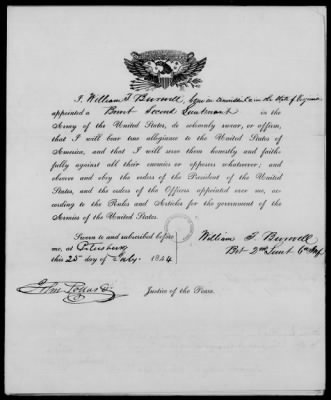 I, William T. Burwell, born in the State of Virginia
appointed a Brevet Second Lieutenant in the
Army of the United States, do solemnly swear, or affirm,
that I will bear true allegiance to the United States of
America, and that I will serve them honestly and faith-
fully against all their enemies or opposers whatsoever; and
observe and obey the orders of the President of the United
States, and the orders of the Officers appointed over me, ac-
cording to the Rules and Articles for the government of the
Armies of the United States.
Sworn to and subscribed before
me, at Petersburg
this 25 day of July 1844
William T. Burwell
Bvt 2nd Lieut 6th Inf
Justice of the Peace.